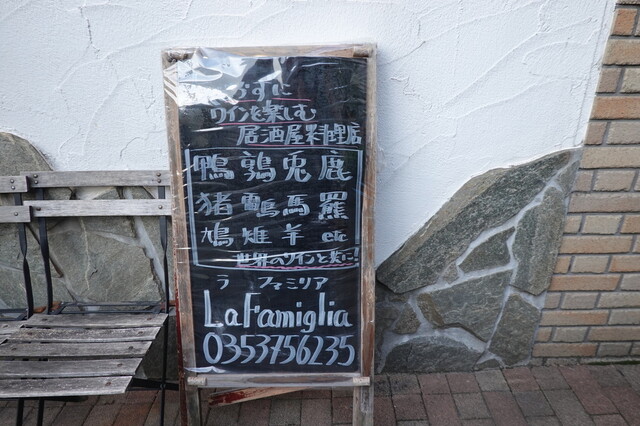 ワインを楽しむ
居酒屋料理店
鴨 鶉 兎 鹿
猪 馬 羆
鳩 雉 羊 etc
世界のワインと共に!
ラ ファミリア
La Famiglia
0353756235